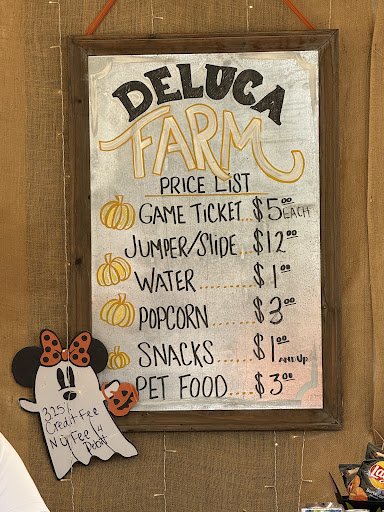 DELUCA
FARM
PRICE LIST
GAME TICKET... $5.00 EACH
JUMPER/SLIDE... $12.00
WATER......... $1.00
POPCORN....... $3.00
SNACKS...... $1.00 AND UP
PET FOOD.... $3.00
3.25%
Credit Fee
No Fee 4
Debit
Lay's